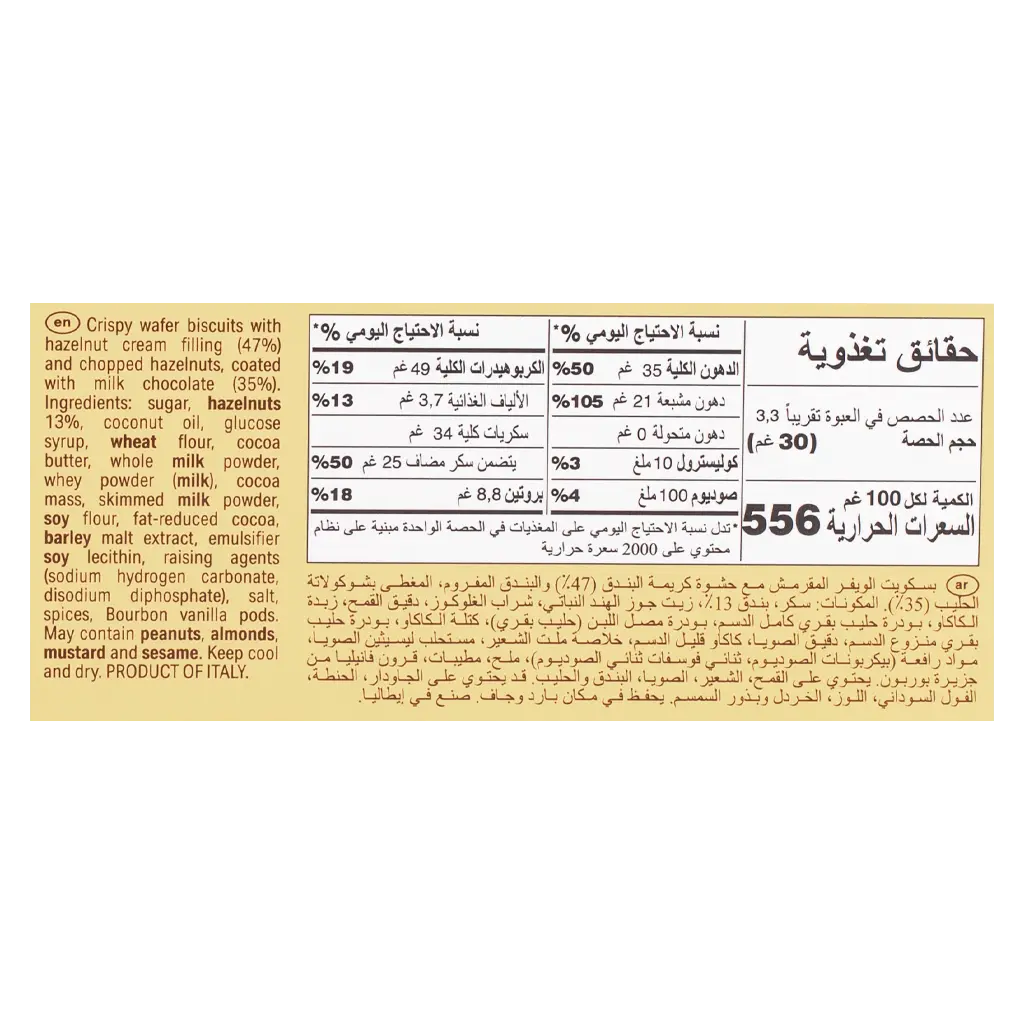 en Crispy wafer biscuits with
hazelnut cream filling (47%)
and chopped hazelnuts, coated
with milk chocolate (35%).
Ingredients: sugar, hazelnuts
13%, coconut oil, glucose
syrup, wheat flour, cocoa
butter, whole milk powder,
whey powder (milk), cocoa
mass, skimmed milk powder,
soy flour, fat-reduced cocoa,
barley malt extract, emulsifier
soy lecithin, raising agents
(sodium hydrogen carbonate,
disodium diphosphate), salt,
spices, Bourbon vanilla pods.
May contain peanuts, almonds,
mustard and sesame. Keep cool
and dry. PRODUCT OF ITALY.
حقائق تغذوية
عدد الحصص في العبوة تقريباً 3,3
حجم الحصة (30 غم)
الكمية لكل 100 غم
السعرات الحرارية 556
نسبة الاحتياج اليومي %*
الدهون الكلية 35 غم %50
دهون مشبعة 21 غم %105
دهون متحولة 0 غم
كوليسترول 10 ملغ %3
صوديوم 100 ملغ %4
نسبة الاحتياج اليومي %*
الكربوهيدرات الكلية 49 غم %19
الألياف الغذائية 3,7 غم %13
سكريات كلية 34 غم
يتضمن سكر مضاف 25 غم %50
بروتين 8,8 غم %18
*تدل نسبة الاحتياج اليومي على المغذيات في الحصة الواحدة مبنية على نظام
محتوي على 2000 سعرة حرارية
ar بسكويت الويفر المقرمش مع حشوة كريمة البندق (47٪) والبندق المفروم، المغطى بشوكولاتة
الحليب (35٪). المكونات: سكر، بندق 13٪، زيت جوز الهند النباتي، شراب الغلوكوز، دقيق القمح، زبدة
الكاكاو، بودرة حليب بقري كامل الدسم، بودرة مصل اللبن (حليب بقري)، كتلة الكاكاو، بودرة حليب
بقري منزوع الدسم، دقيق الصويا، كاكاو قليل الدسم، خلاصة ملت الشعير، مستحلب ليسيثين الصويا،
مواد رافعة (بيكربونات الصوديوم، ثنائي فوسفات ثنائي الصوديوم)، ملح، مطيبات، قرون فانيليا من
جزيرة بوربون. يحتوي على القمح، الشعير، الصويا، البندق والحليب. قد يحتوي على الجاودار، الحنطة،
الفول السوداني، اللوز، الخردل وبذور السمسم. يحفظ في مكان بارد وجاف. صنع في إيطاليا.